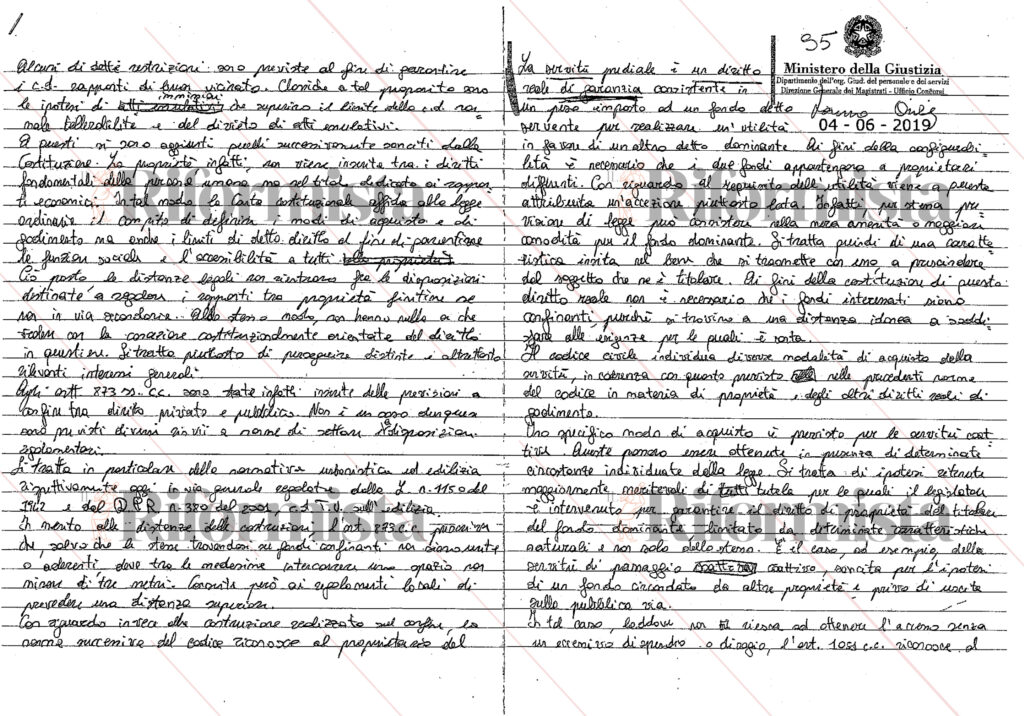 1
Alcuni di dette restrizioni sono previste al fine di garantire
i c.d. rapporti di buon vicinato. Classiche a tal proposito sono
le ipotesi di immissioni che superino il limite della c.d. nor
male tollerabilità e del divieto di atti emulativi.
A questi si sono aggiunti quelli successivamente sanciti dalla
Costituzione. La proprietà infatti, non viene inserita tra i diritti
fondamentali della persona umana ma nel titolo dedicato ai rappor
ti economici. In tal modo la Carta costituzionale affida alla legge
ordinaria il compito di definire i modi di acquisto e di
godimento ma anche i limiti di detto diritto al fine di garantirne
la funzione sociale e l'accessibilità a tutti
Ciò posto le distanze legali non rientrano fra le disposizioni
destinate a regolare i rapporti tra proprietà finitime se
non in via secondaria. Allo stesso modo, non hanno nulla a che
vedere con la concezione costituzionalmente orientata del diritto
in questione. Si tratta piuttosto di perseguire distinti e altrettanto
rilevanti interessi generali.
Agli artt. 873 ss. c.c. sono state infatti inserite delle previsioni a
confine tra diritto privato e pubblico. Non è un caso dunque
sono previsti diversi rinvii a norme di settore e a disposizioni
regolamentari.
Si tratta in particolare della normativa urbanistica ed edilizia
rispettivamente oggi in via generale regolate dalla L. n. 1150 del
1942 e dal D.P.R. n. 380 del 2001 c.d. T.U. sull'edilizia.
In merito alle distanze delle costruzioni l'art. 873 c.c. prevede
che, salvo che le stesse trovandosi su fondi confinanti non siano unite
o aderenti, deve tra le medesime intercorrere uno spazio non
minore di tre metri. Consente però ai regolamenti locali di
prevedere una distanza superiore.
Con riguardo invece alla costruzione realizzata sul confine, la
norma successiva del codice riconosce al proprietario del
95
Ministero della Giustizia
Dipartimento dell'org. Giud. del personale e dei servizi
Direzione Generale dei Magistrati - Ufficio Concorsi
04 - 06 - 2019
La servitù prediale è un diritto
reale di garanzia consistente in
un peso imposto ad un fondo detto
servente per realizzare un'utilità
in favore di un altro detto dominante. Ai fini della configurabi-
lità è necessario che i due fondi appartengano a proprietari
differenti. Con riguardo al requisito dell'utilità viene a questa
attribuita un'accezione piuttosto lata. Infatti, per stessa pre
visione di legge può consistere nella mera amenità o maggiore
comodità per il fondo dominante. Si tratta quindi di una caratte
ristica insita nel bene che si trasmette con esso a prescindere
dal soggetto che ne è titolare. Ai fini della costituzione di questo
diritto reale non è necessario che i fondi interessati siano
confinanti purché si trovino a una distanza idonea a soddi-
sfare alle esigenze per le quali è sorta.
Il codice civile individua diverse modalità di acquisto della
servitù, in coerenza con quanto previsto nelle precedenti norme
del codice in materia di proprietà e degli altri diritti reali di
godimento.
Uno specifico modo di acquisto è previsto per le servitù coat
tive. Queste possono essere ottenute in presenza di determinate
circostanze individuate dalla legge. Si tratta di ipotesi ritenute
maggiormente meritevoli di tutela per le quali il legislatore
è intervenuto per garantire il diritto di proprietà del titolare
del fondo dominante, limitato da determinate caratteristiche
naturali e non solo dello stesso. È il caso, ad esempio, della
servitù di passaggio coattivo, sancita per l'ipotesi
di un fondo circondato da altre proprietà e privo di uscita
sulla pubblica via.
In tal caso, laddove non si riesca ad ottenere l'accesso senza
un eccessivo dispendio o disagio, l'art. 1051 c.c. riconosce al
Riformista
Riformista
Riformista
Riformista